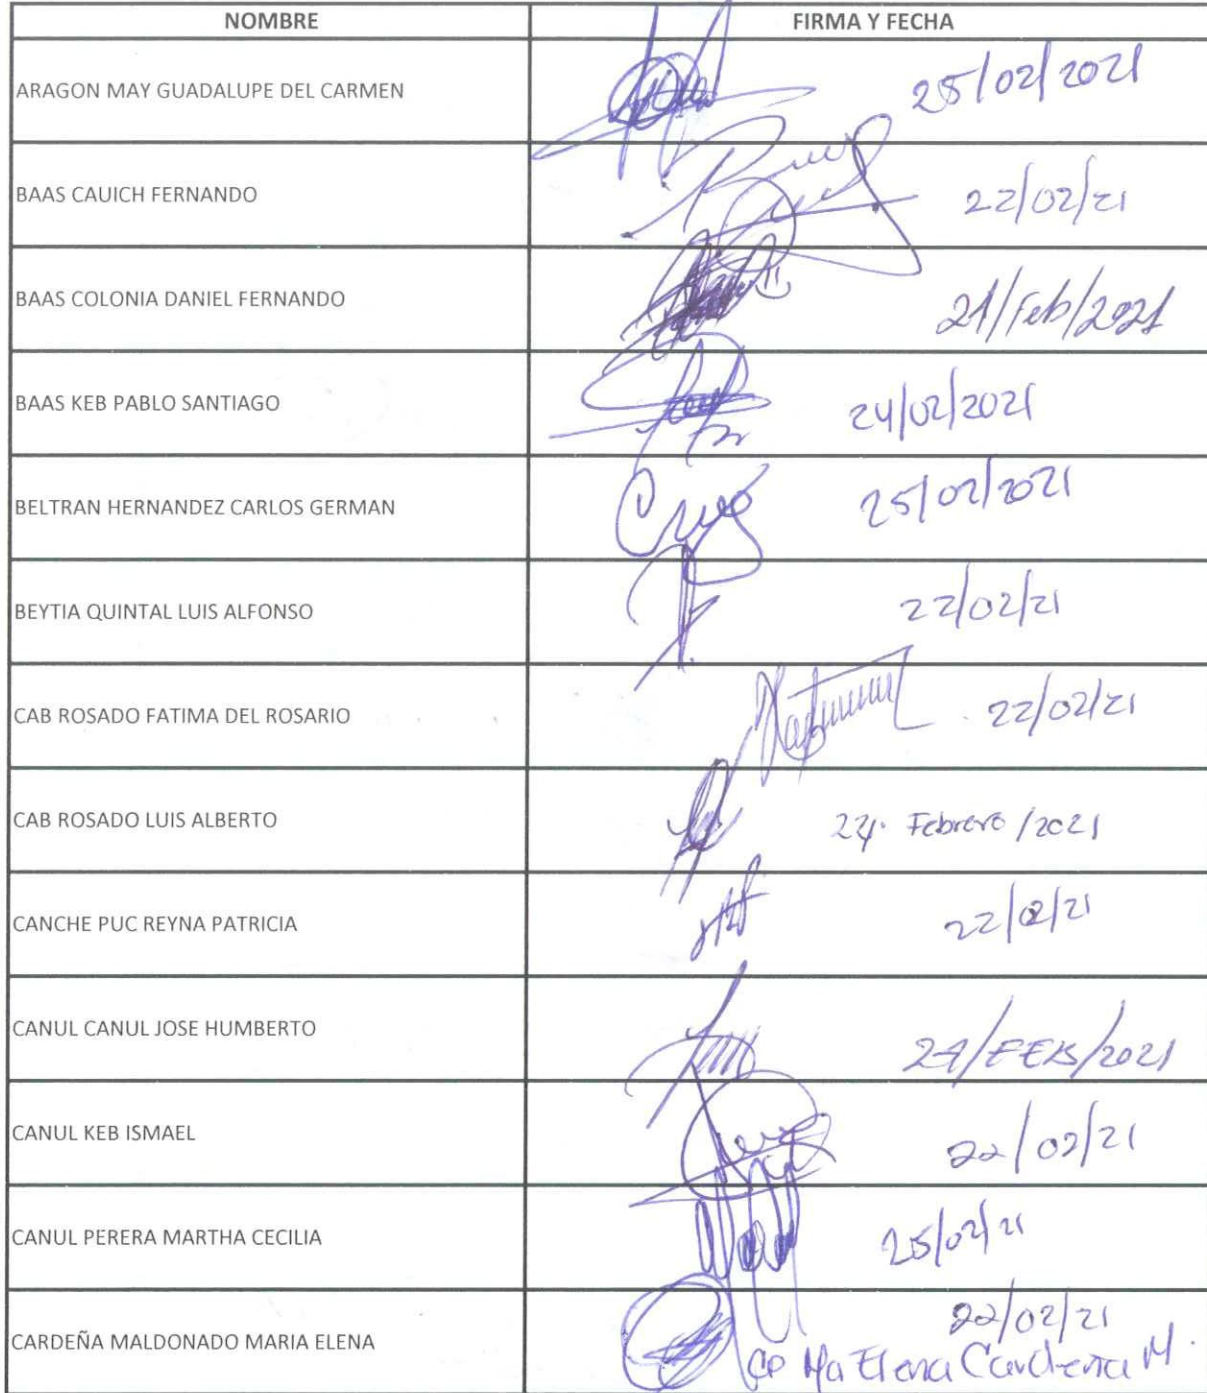 NOMBRE FIRMA Y FECHA
ARAGON MAY GUADALUPE DEL CARMEN 25/02/2021
BAAS CAUICH FERNANDO 22/02/21
BAAS COLONIA DANIEL FERNANDO 21/Feb/2021
BAAS KEB PABLO SANTIAGO 24/02/2021
BELTRAN HERNANDEZ CARLOS GERMAN 25/02/2021
BEYTIA QUINTAL LUIS ALFONSO 22/02/21
CAB ROSADO FATIMA DEL ROSARIO 22/02/21
CAB ROSADO LUIS ALBERTO Febrero /2021
CANCHE PUC REYNA PATRICIA 22/02/21
CANUL CANUL JOSE HUMBERTO /FEB/2021
CANUL KEB ISMAEL 22/02/21
CANUL PERERA MARTHA CECILIA 25/02/21
CARDEÑA MALDONADO MARIA ELENA 22/02/21
Ma Elena Cardeña M.